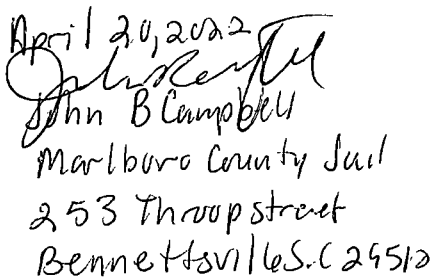 April 20, 2022
John B Campbell
Marlboro County Jail
253 Throop street
Bennettsville S.C 29512